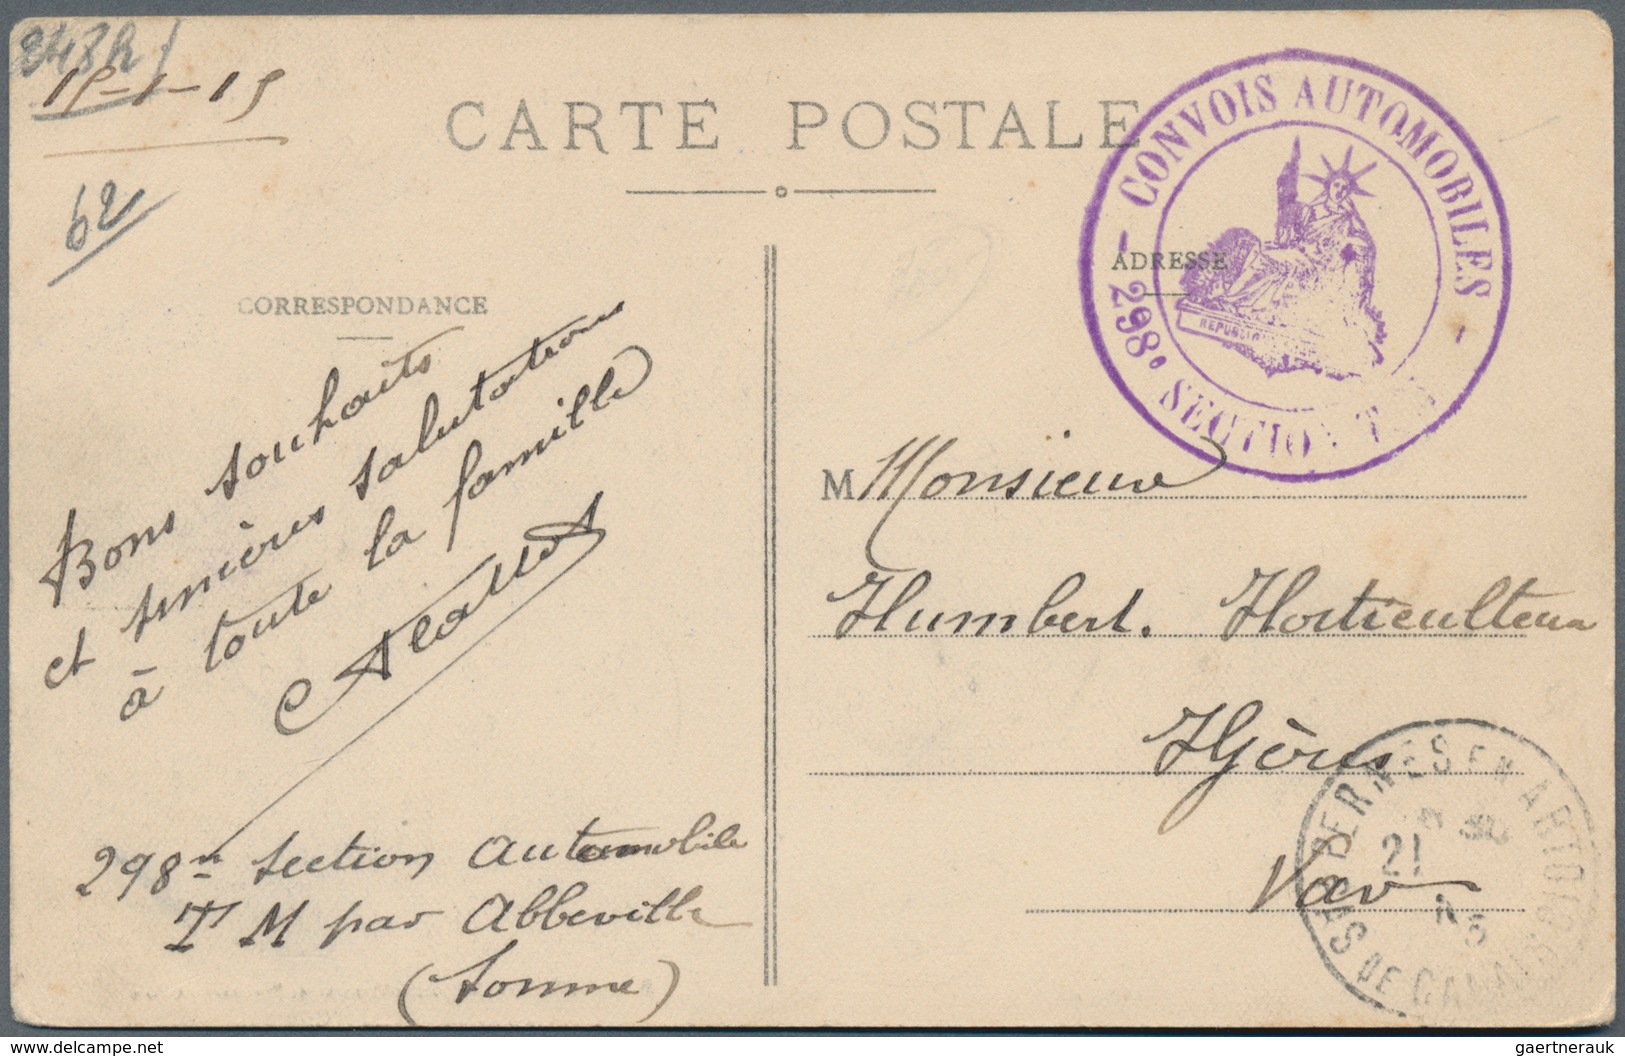 248R
15-1-15
CARTE POSTALE
62
CORRESPONDANCE
Bons souhaits
et sincères salutations
à toute la famille
298e section automobile
T M par Abbeville
(Somme)
CONVOIS AUTOMOBILES
298e SECTION T.
REPUBLIQUE
ADRESSE
M Monsieur
Humbert. Horticulteur
Hyères
Var
BERMES EN ARTOIS
PAS DE CALAIS
21
15
delcampe.net
gaertnerauk